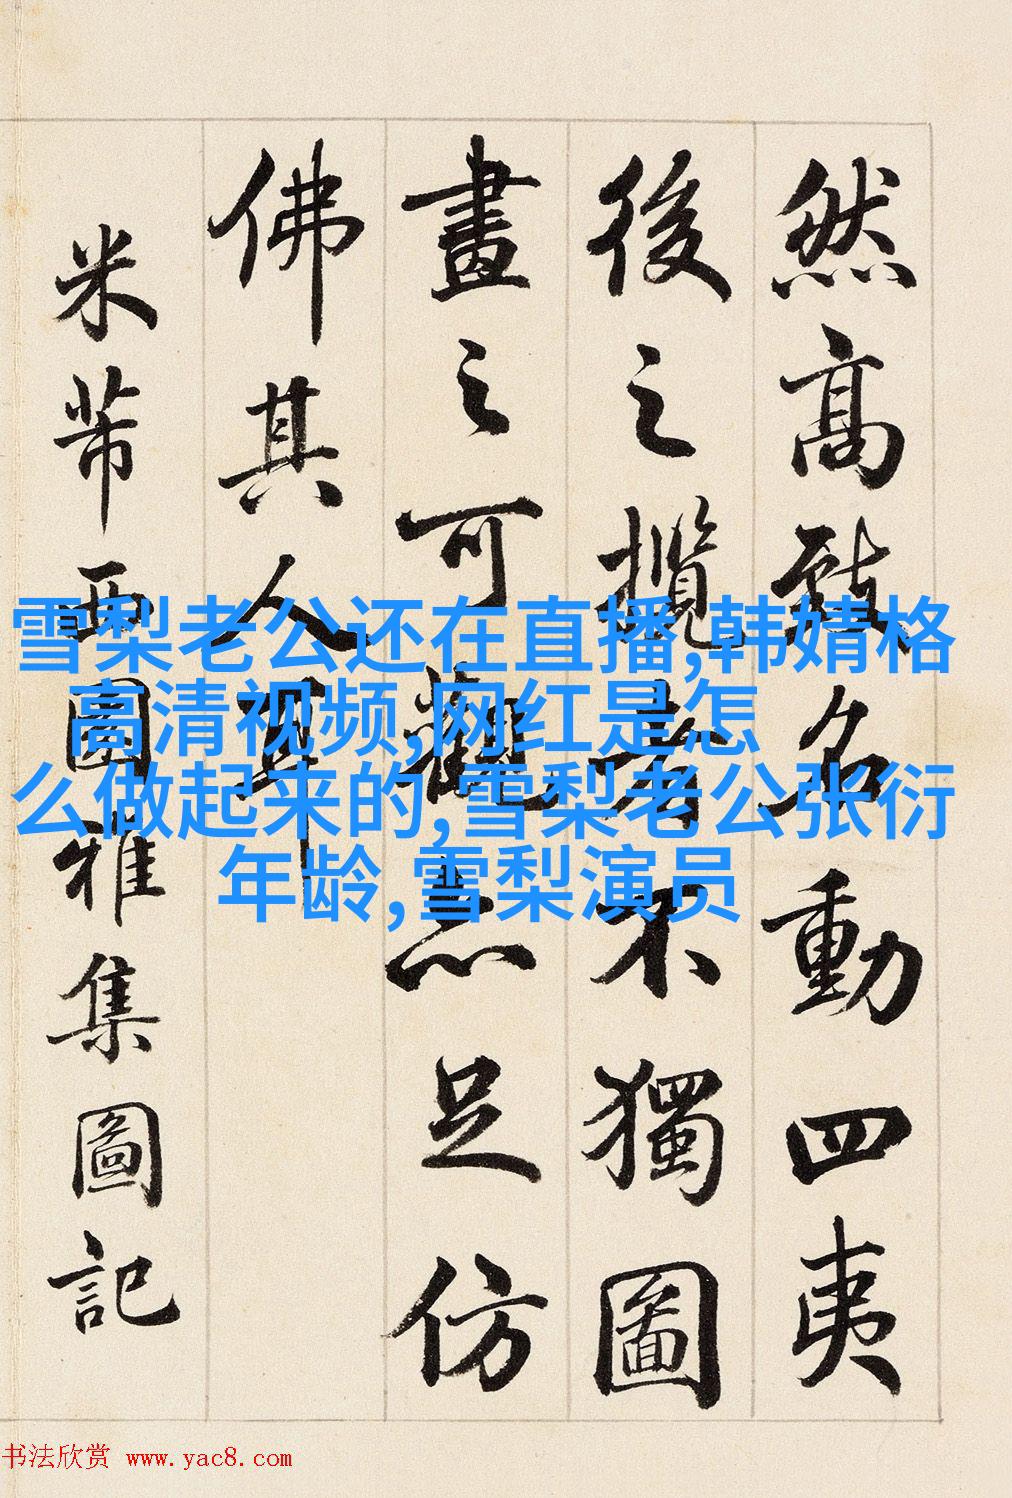 然高致名動四夷
後之攬者不獨圖
畫之可觀亦足仿
佛其人耳
米芾西園雅集圖記
雪梨老公还在直播,韩婧格
高清视频,网红是怎
么做起来的,雪梨老公张衍
年龄,雪梨演员
书法欣赏 www.yac8.com